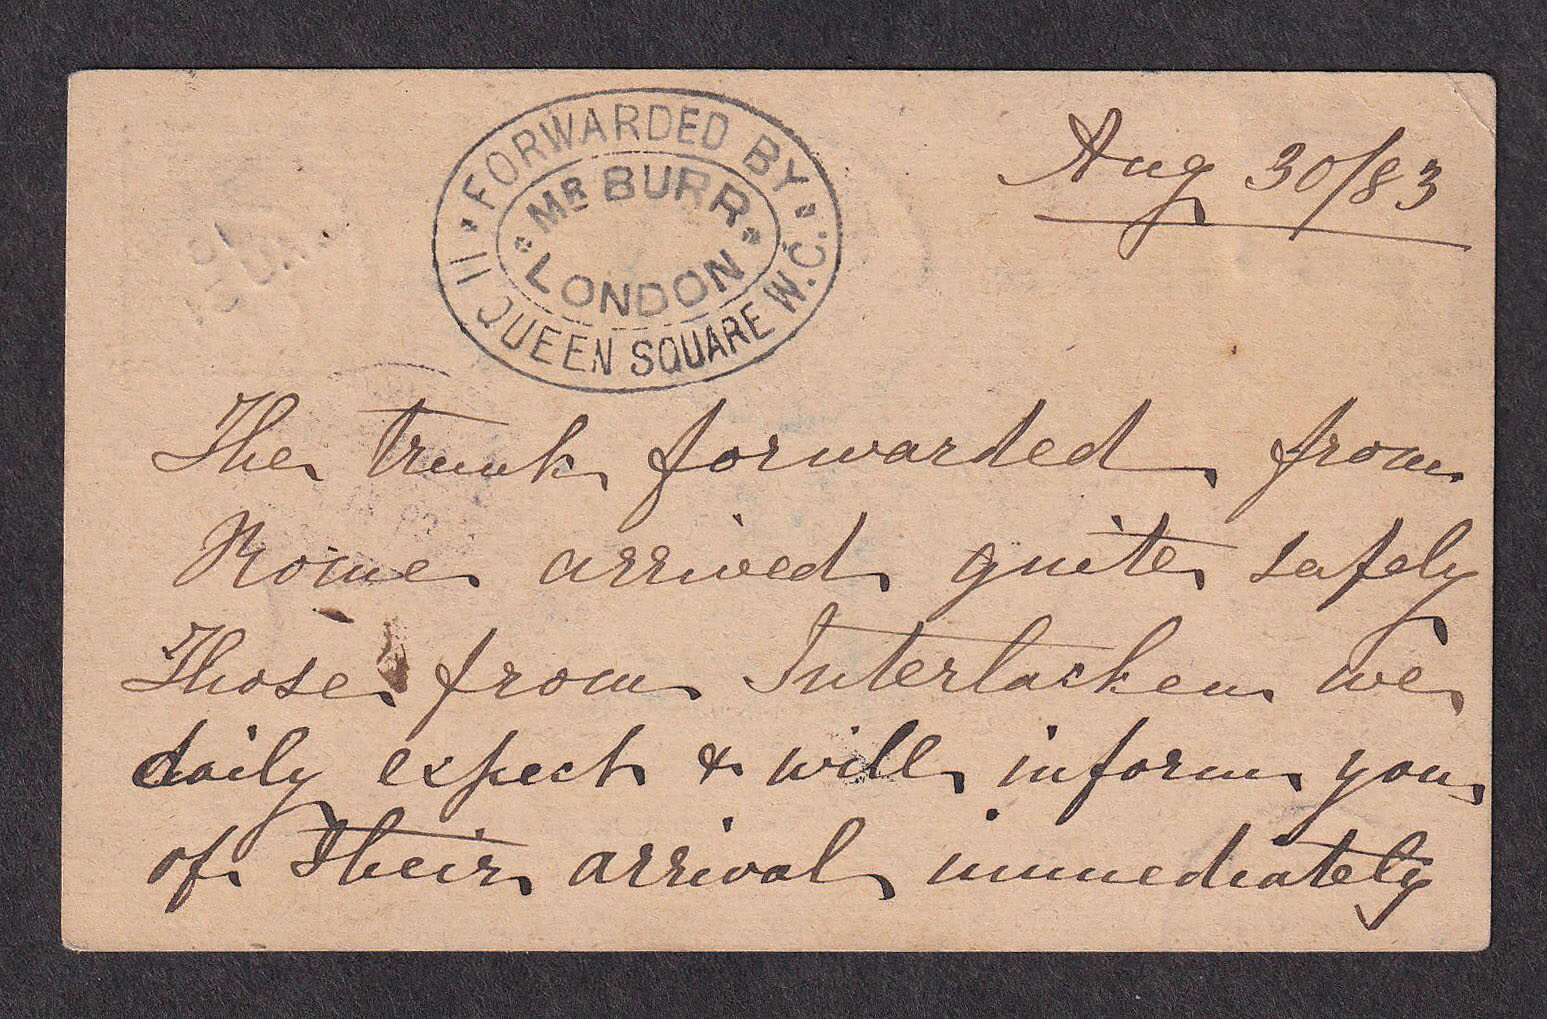 FORWARDED BY
MR BURR
LONDON
11 QUEEN SQUARE W.C.
Aug 30/83
The trunk forwarded from
Rome arrived quite safely
Those from Interlacken we
daily expect & will inform you
of their arrival immediately